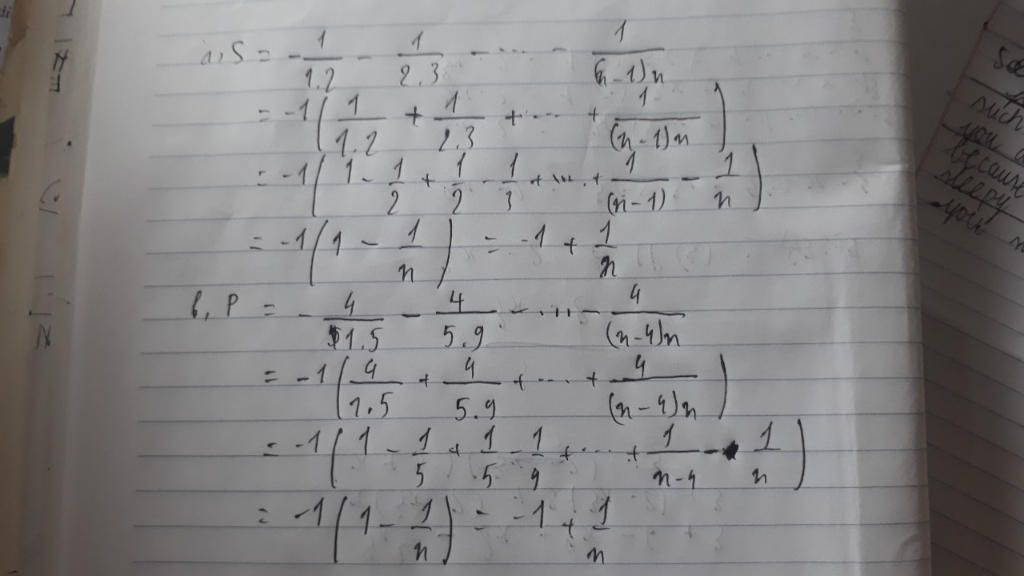 a, S = - 1/1.2 - 1/2.3 - ... - 1/(n-1)n
= -1(1/1.2 + 1/2.3 + ... + 1/(n-1)n)
= -1(1 - 1/2 + 1/2 - 1/3 + ... + 1/(n-1) - 1/n)
= -1(1 - 1/n) = -1 + 1/n
b, P = - 4/1.5 - 4/5.9 - ... - 4/(n-4)n
= -1(4/1.5 + 4/5.9 + ... + 4/(n-4)n)
= -1(1 - 1/5 + 1/5 - 1/9 + ... + 1/n-4 - 1/n)
= -1(1 - 1/n) = -1 + 1/n
such
you
because
sleepy
you